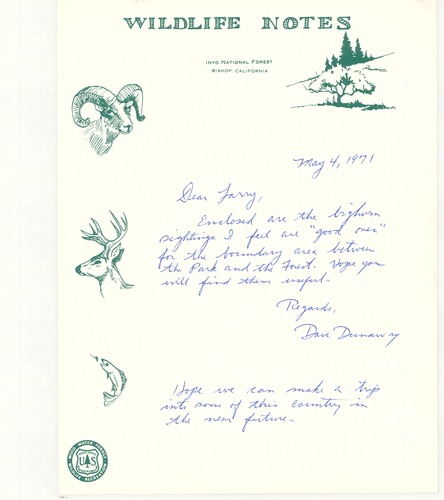 WILDLIFE NOTES
INYO NATIONAL FOREST
BISHOP, CALIFORNIA
May 4, 1971
Dear Larry,
Enclosed are the bighorn
sightings I feel are "good ones"
for the boundary area between
the Park and the Forest. Hope you
will find them useful.
Regards,
Dave Dunaway
Hope we can make a trip
into some of this country in
the near future.
US